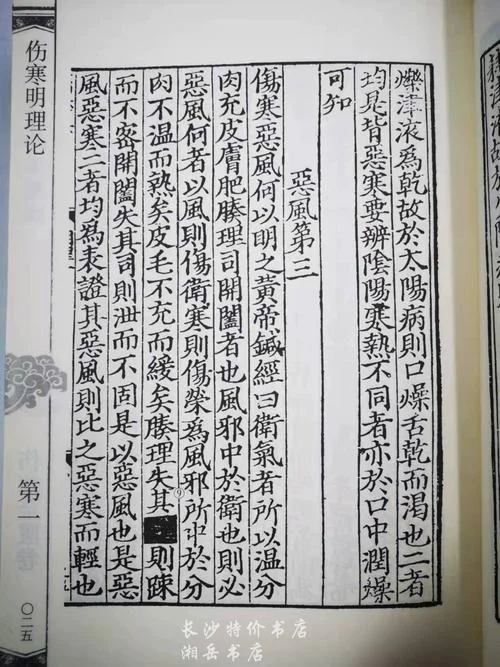 爍津液爲乾故於太陽病則口燥舌乾而渴也二者
均是背惡寒要辨陰陽寒熱不同者亦於口中潤燥
可知
惡風第三
傷寒惡風何以明之黃帝鍼經曰衛氣者所以温分
肉充皮膚肥腠理司開闔者也風邪中於衛也則必
惡風何者以風則傷衛寒則傷榮爲風邪所中於分
肉不温而熱矣皮毛不充而緩矣腠理失其⑨則踈
而不密開闔失其司則泄而不固是以惡風也是惡
風惡寒二者均為表證其惡風則比之惡寒而輕也
伤寒明理论
第一
〇二五
长沙特价书店
湘岳书店